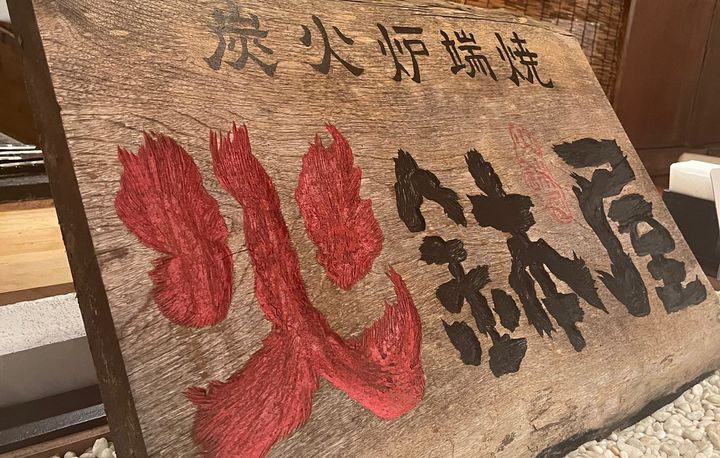 炭火炉端焼
火鉢屋